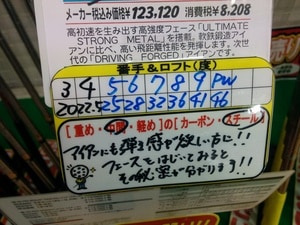 メーカー税込み価格¥123,120 消費税¥8,208
高初速を生み出す高強度フェース「ULTIMATE
STRONG METAL」を搭載。軟鉄鍛造アイ
アンに比べ、高い飛距離性能を発揮します。次世
代の「DRIVING FORGED」アイアンです。
番手&ロフト(度)
3 4 5 6 7 8 9 PW
20 22.5 25 28 32 36 41 46
[重め・中間・軽め]の[カーボン・スチール]
アイアンにも弾き感が欲しい方に!!
フェースをはじいてみると
その秘密が分かります!!